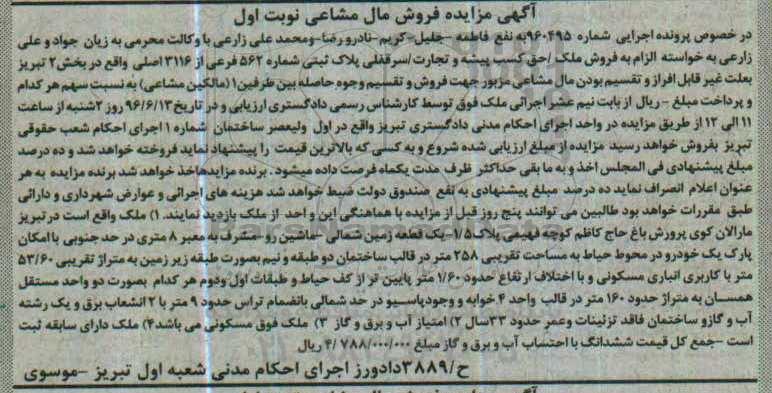 آگهی مزایده فروش مال مشاعی نوبت اول
در خصوص پرونده اجرایی شماره ۹۶۰۴۹۵به نفع فاطمه -جلیل-کریم-نادرو رضا-ومحمد علی زارعی با وکالت محرمی به زیان جواد و علی
زارعی به خواسته الزام به فروش ملک /حق کسب پیشه و تجارت/سرقفلی پلاک ثبتی شماره ۵۶۲ فرعی از ۳۱۱۶ اصلی واقع در بخش۲ تبریز
بعلت غیر قابل افراز و تقسیم بودن مال مشاعی مزبور جهت فروش و تقسیم وجوه حاصله بین طرفین۱(مالکین مشاعی) به نسبت سهم هر کدام
و پرداخت مبلغ - ریال از بابت نیم عشر اجرائی ملک فوق توسط کارشناس رسمی دادگستری ارزیابی و در تاریخ۹۶/۶/۱۳ روز ۲شنبه از ساعت
۱۱ الی ۱۲ از طریق مزایده در واحد اجرای احکام مدنی دادگستری تبریز واقع در اول ولیعصر ساختمان شماره ۱ اجرای احکام شعب حقوقی
تبریز بفروش خواهد رسید مزایده از مبلغ ارزیابی شده شروع و به کسی که بالاترین قیمت را پیشنهاد نماید فروخته خواهد شد و ده درصد
مبلغ پیشنهادی فی المجلس اخذ و به ما بقی حداکثر ظرف مدت یکماه فرصت داده میشود . برنده مزایدهاخذ خواهد شد برنده مزایده به هر
عنوان اعلام انصراف نماید ده درصد مبلغ پیشنهادی به نفع صندوق دولت ضبط خواهد شد هزینه های اجرائی و عوارض شهرداری و دارائی
طبق مقررات خواهد بود طالبین می توانند پنج روز قبل از مزایده با هماهنگی این و احد از ملک بازدید نمایند. ۱) ملک واقع است در تبریز
مارالان کوی پرورش باغ حاج کاظم کوچه فهیمی پلاک۱/۵-یک قطعه زمین شمالی -ماشین رو-مشرف به معبر ۸ متری در حد جنوبی با امکان
پارک یک خودرو در محوط حیاط به مساحت تقریبی ۲۵۸ متر در قالب ساختمان دو طبقه و نیم بصورت طبقه زیر زمین به متراژ تقریبی ۵۳/۶۰
متر با کاربری انباری مسکونی و با اختلاف ارتفاع حدود ۱/۶۰ متر پایین تر از کف حیاط و طبقات اول ودوم هر کدام بصورت دو واحد مستقل
همسان به متراژ حدود ۱۶۰ متر در قالب واحد ۴ خوابه و وجودپاسیو در حد شمالی بانضمام تراس حدود ۹ متر با ۲ انشعاب برق و یک رشته
آب و گازو ساختمان فاقد تزئینات وعمر حدود ۳۳سال ۲) امتیاز آب و برق و گاز ۳) ملک فوق مسکونی می باشد۴) ملک دارای سابقه ثبت
است -جمع کل قیمت ششدانگ با احتساب آب و برق و گاز مبلغ ۴/۷۸۸/۰۰۰/۰۰۰ ریال
ح/۳۸۸۹دادورز اجرای احکام مدنی شعبه اول تبریز -موسوی